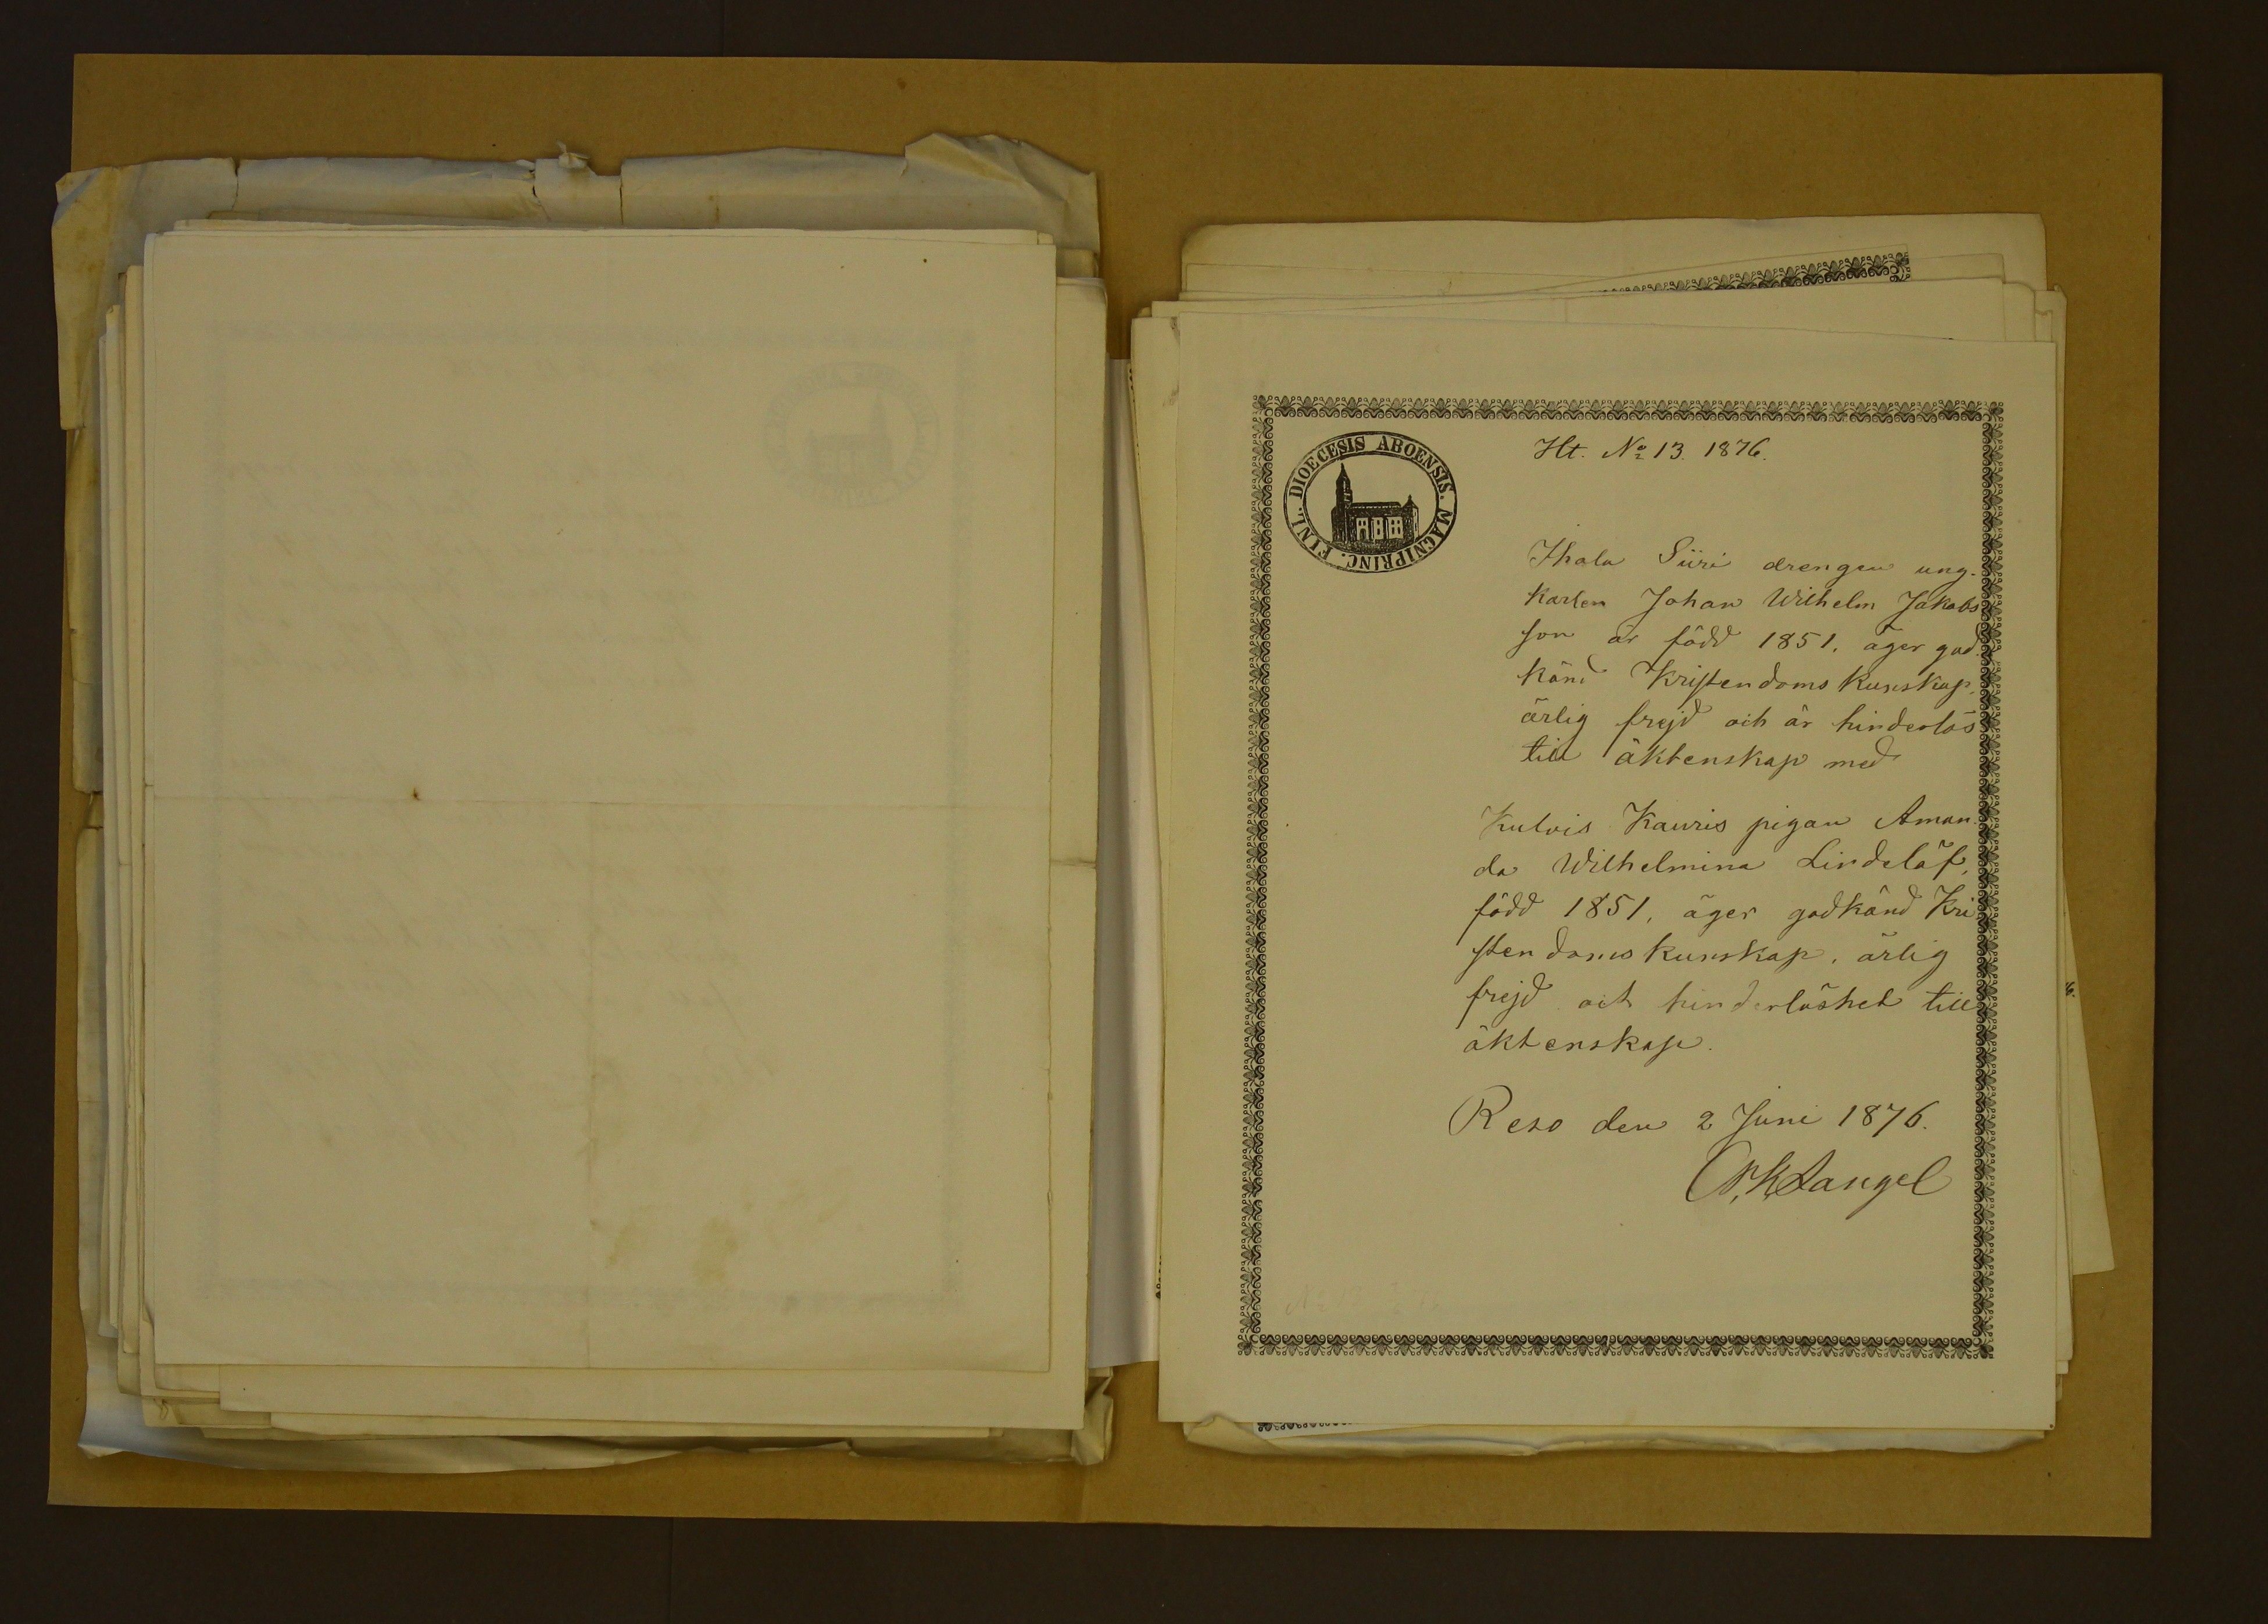 Ht. No 13. 1876.
DIOECESIS ABOENSIS. MAGNIPRINC. FINL.
Ihala Siiri drengen ung-
karlen Johan Wilhelm Jakobs
son är född 1851, äger god-
känd Kristendoms kunskap,
ärlig frejd och är hinderlös
till äktenskap med
Kulvis Kauris pigan Aman-
da Wilhelmina Lindelöf,
född 1851, äger godkänd Kri
stendoms kunskap, ärlig
frejd och hinderlöshet till
äktenskap.
Reso den 2 Juni 1876.
Langel